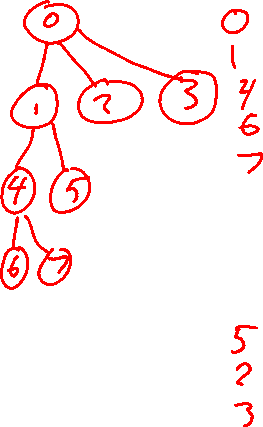 0
1 2 3
4 5
6 7
0
1
4
6
7
5
2
3